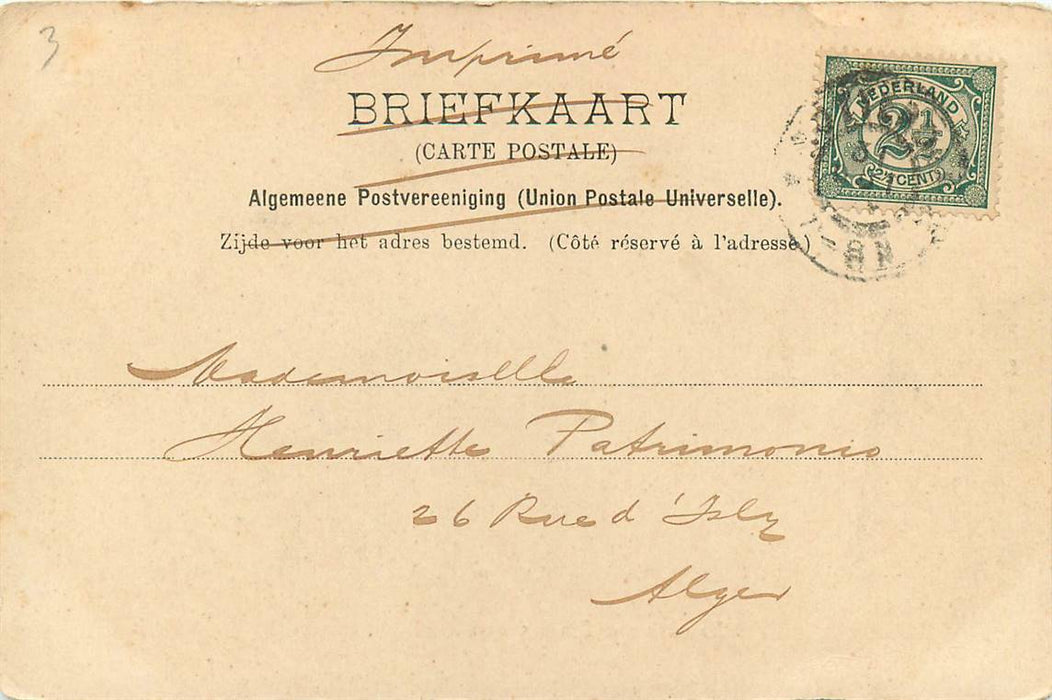 3
Imprimé
BRIEFKAART
(CARTE POSTALE)
Algemeene Postvereeniging (Union Postale Universelle).
Zijde voor het adres bestemd. (Côté réservé à l'adresse.)
NEDERLAND
2½
2½ CENT
Mademoiselle
Henriette Patrimonio
26 Rue d'Isly
Alger